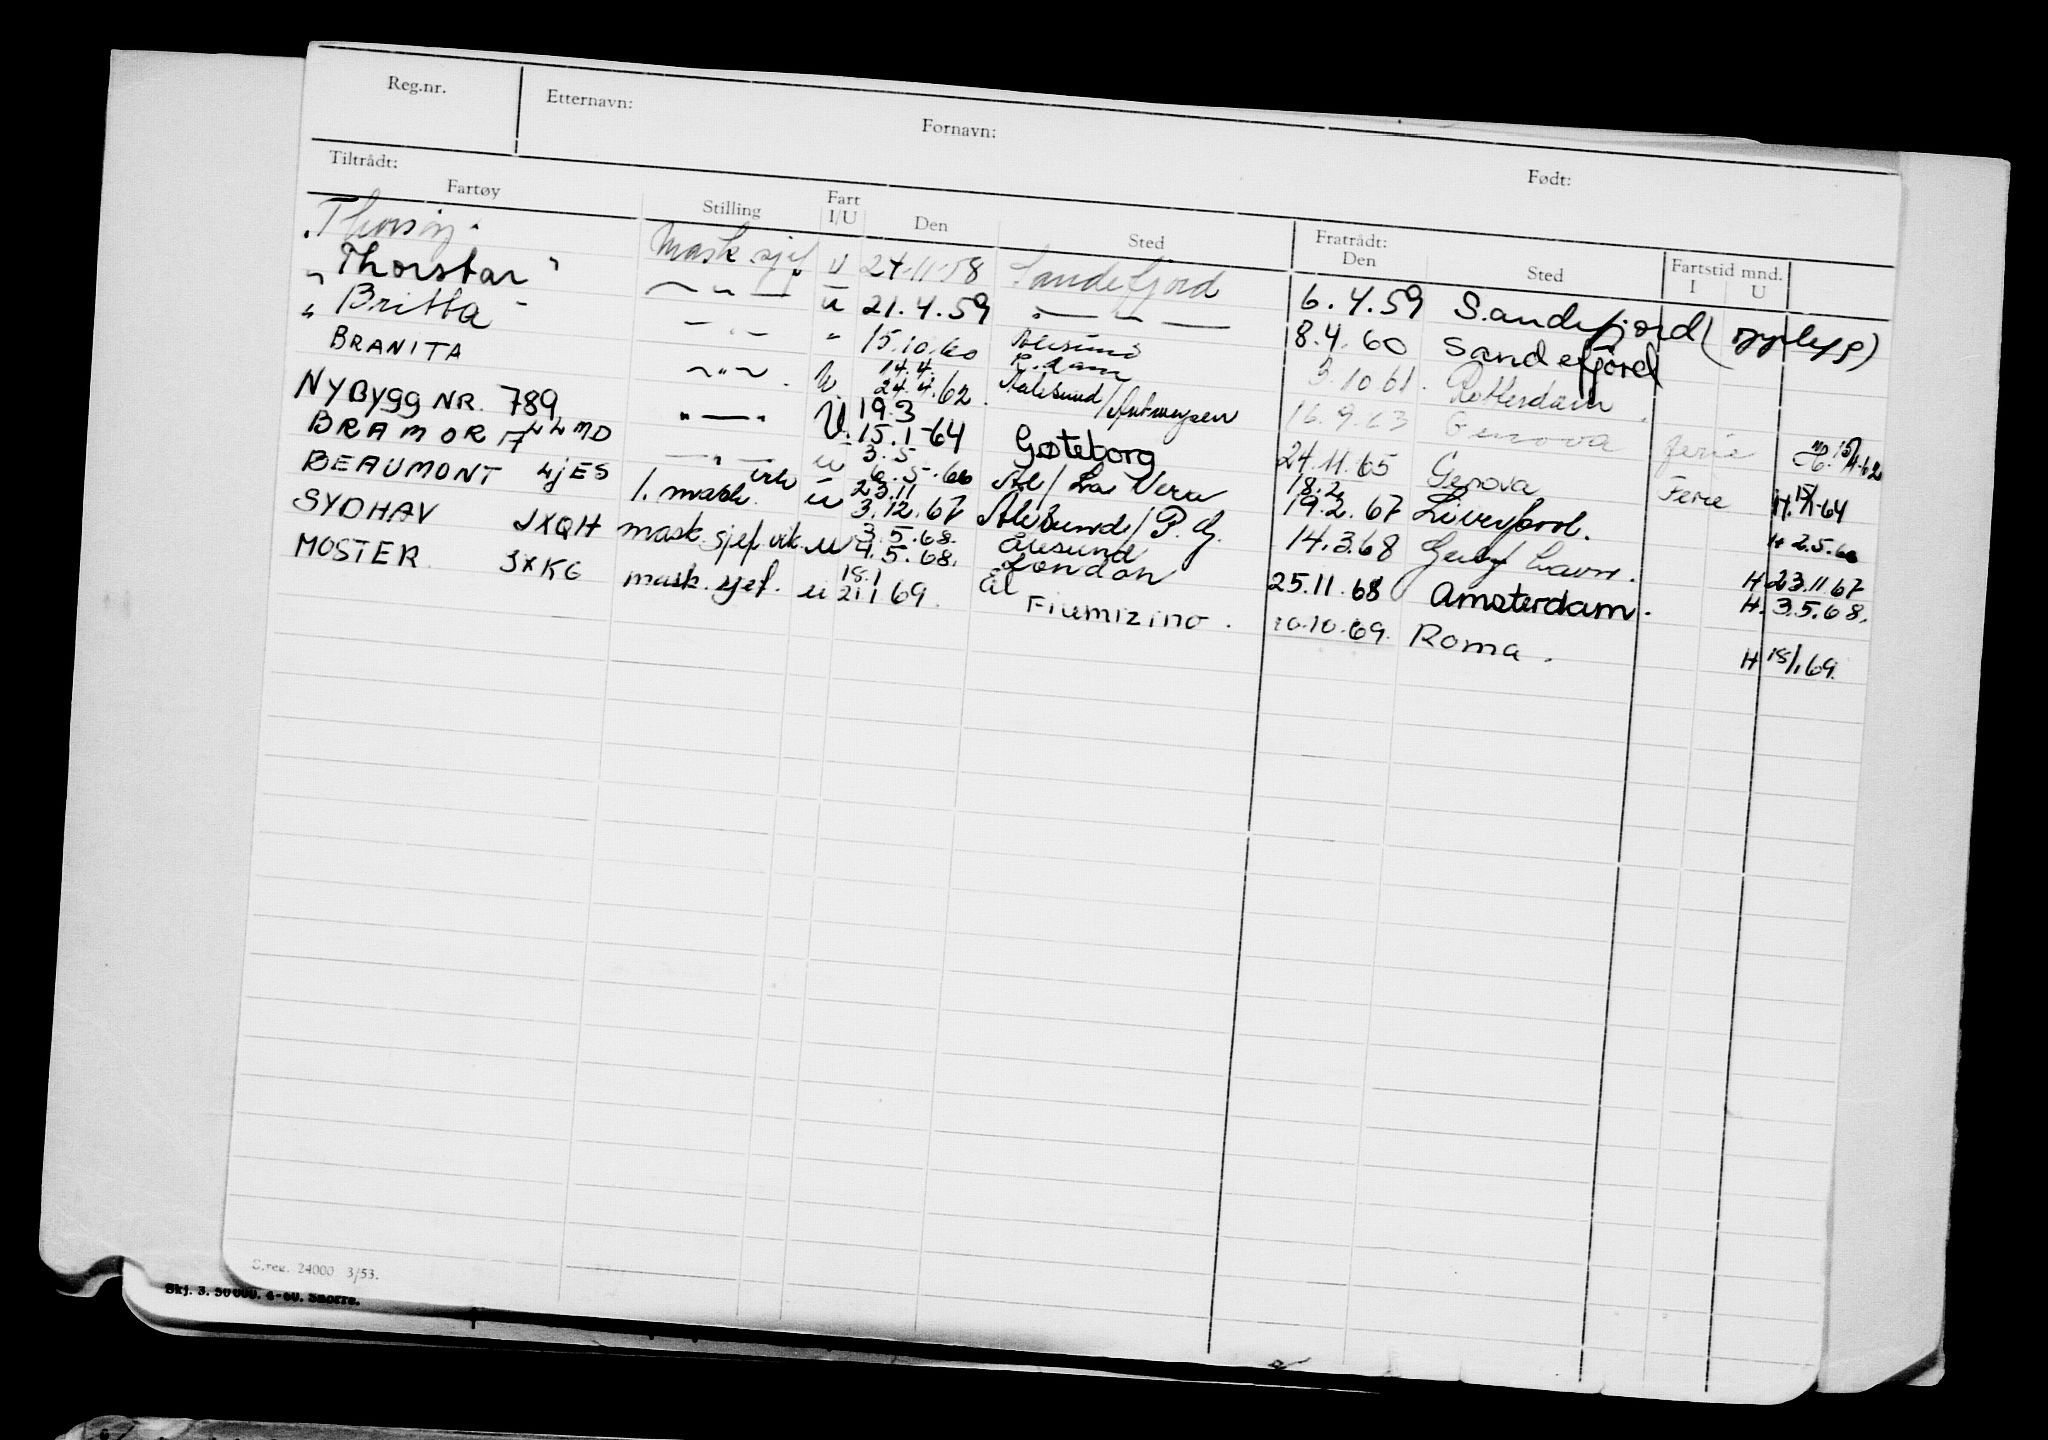 Reg.nr. Etternavn: Fornavn: Født:
Tiltrådt: Fratrådt: Fartstid mnd.
Fartøy Stilling Fart I/U Den Sted Den Sted I U
"Thorsøy" Mask.sjef U 24.11.58 Sandefjord 6.4.59 Sandefjord (opplegg)
"Thorstar" — " — u 21.4.59 — " — 8.4.60 Sandefjord
"Britta" — " — " 15.10.60 Ålesund 3.10.61. Rotterdam
BRANITA — " — U. 14.4. 24.4.62. R.dam Aalesund/Antwerpen 16.9.63 Genova Ferie
NYBYGG NR. 789 " — " U. 19.3 15.1-64 Gøteborg 24.11.65 Genova Ferie H. 15/1-64
BRAMORA LLMD — " — u 3.5 6.5.66 Ål/La Vera 18.2 19.2.67 Liverpool. H 2.5.66
BEAUMONT LJES 1. mask. vik u 23.11 3.12.67 Ålesund/P.G. 14.3.68 H 23.11.67
SYDHAV JXQH mask.sjef vik. u 3.5.68. 4.5.68. Ålesund London 25.11.68 Amsterdam. H. 3.5.68.
MOSTER JXKG mask.sjef. u 18.1 21.1 69. Ål Fiumizino. 10.10.69. Roma. H 18/1 69.
S.reg. 24000 3/53.
Skj. 3. 50000. 4-60. Snorre.